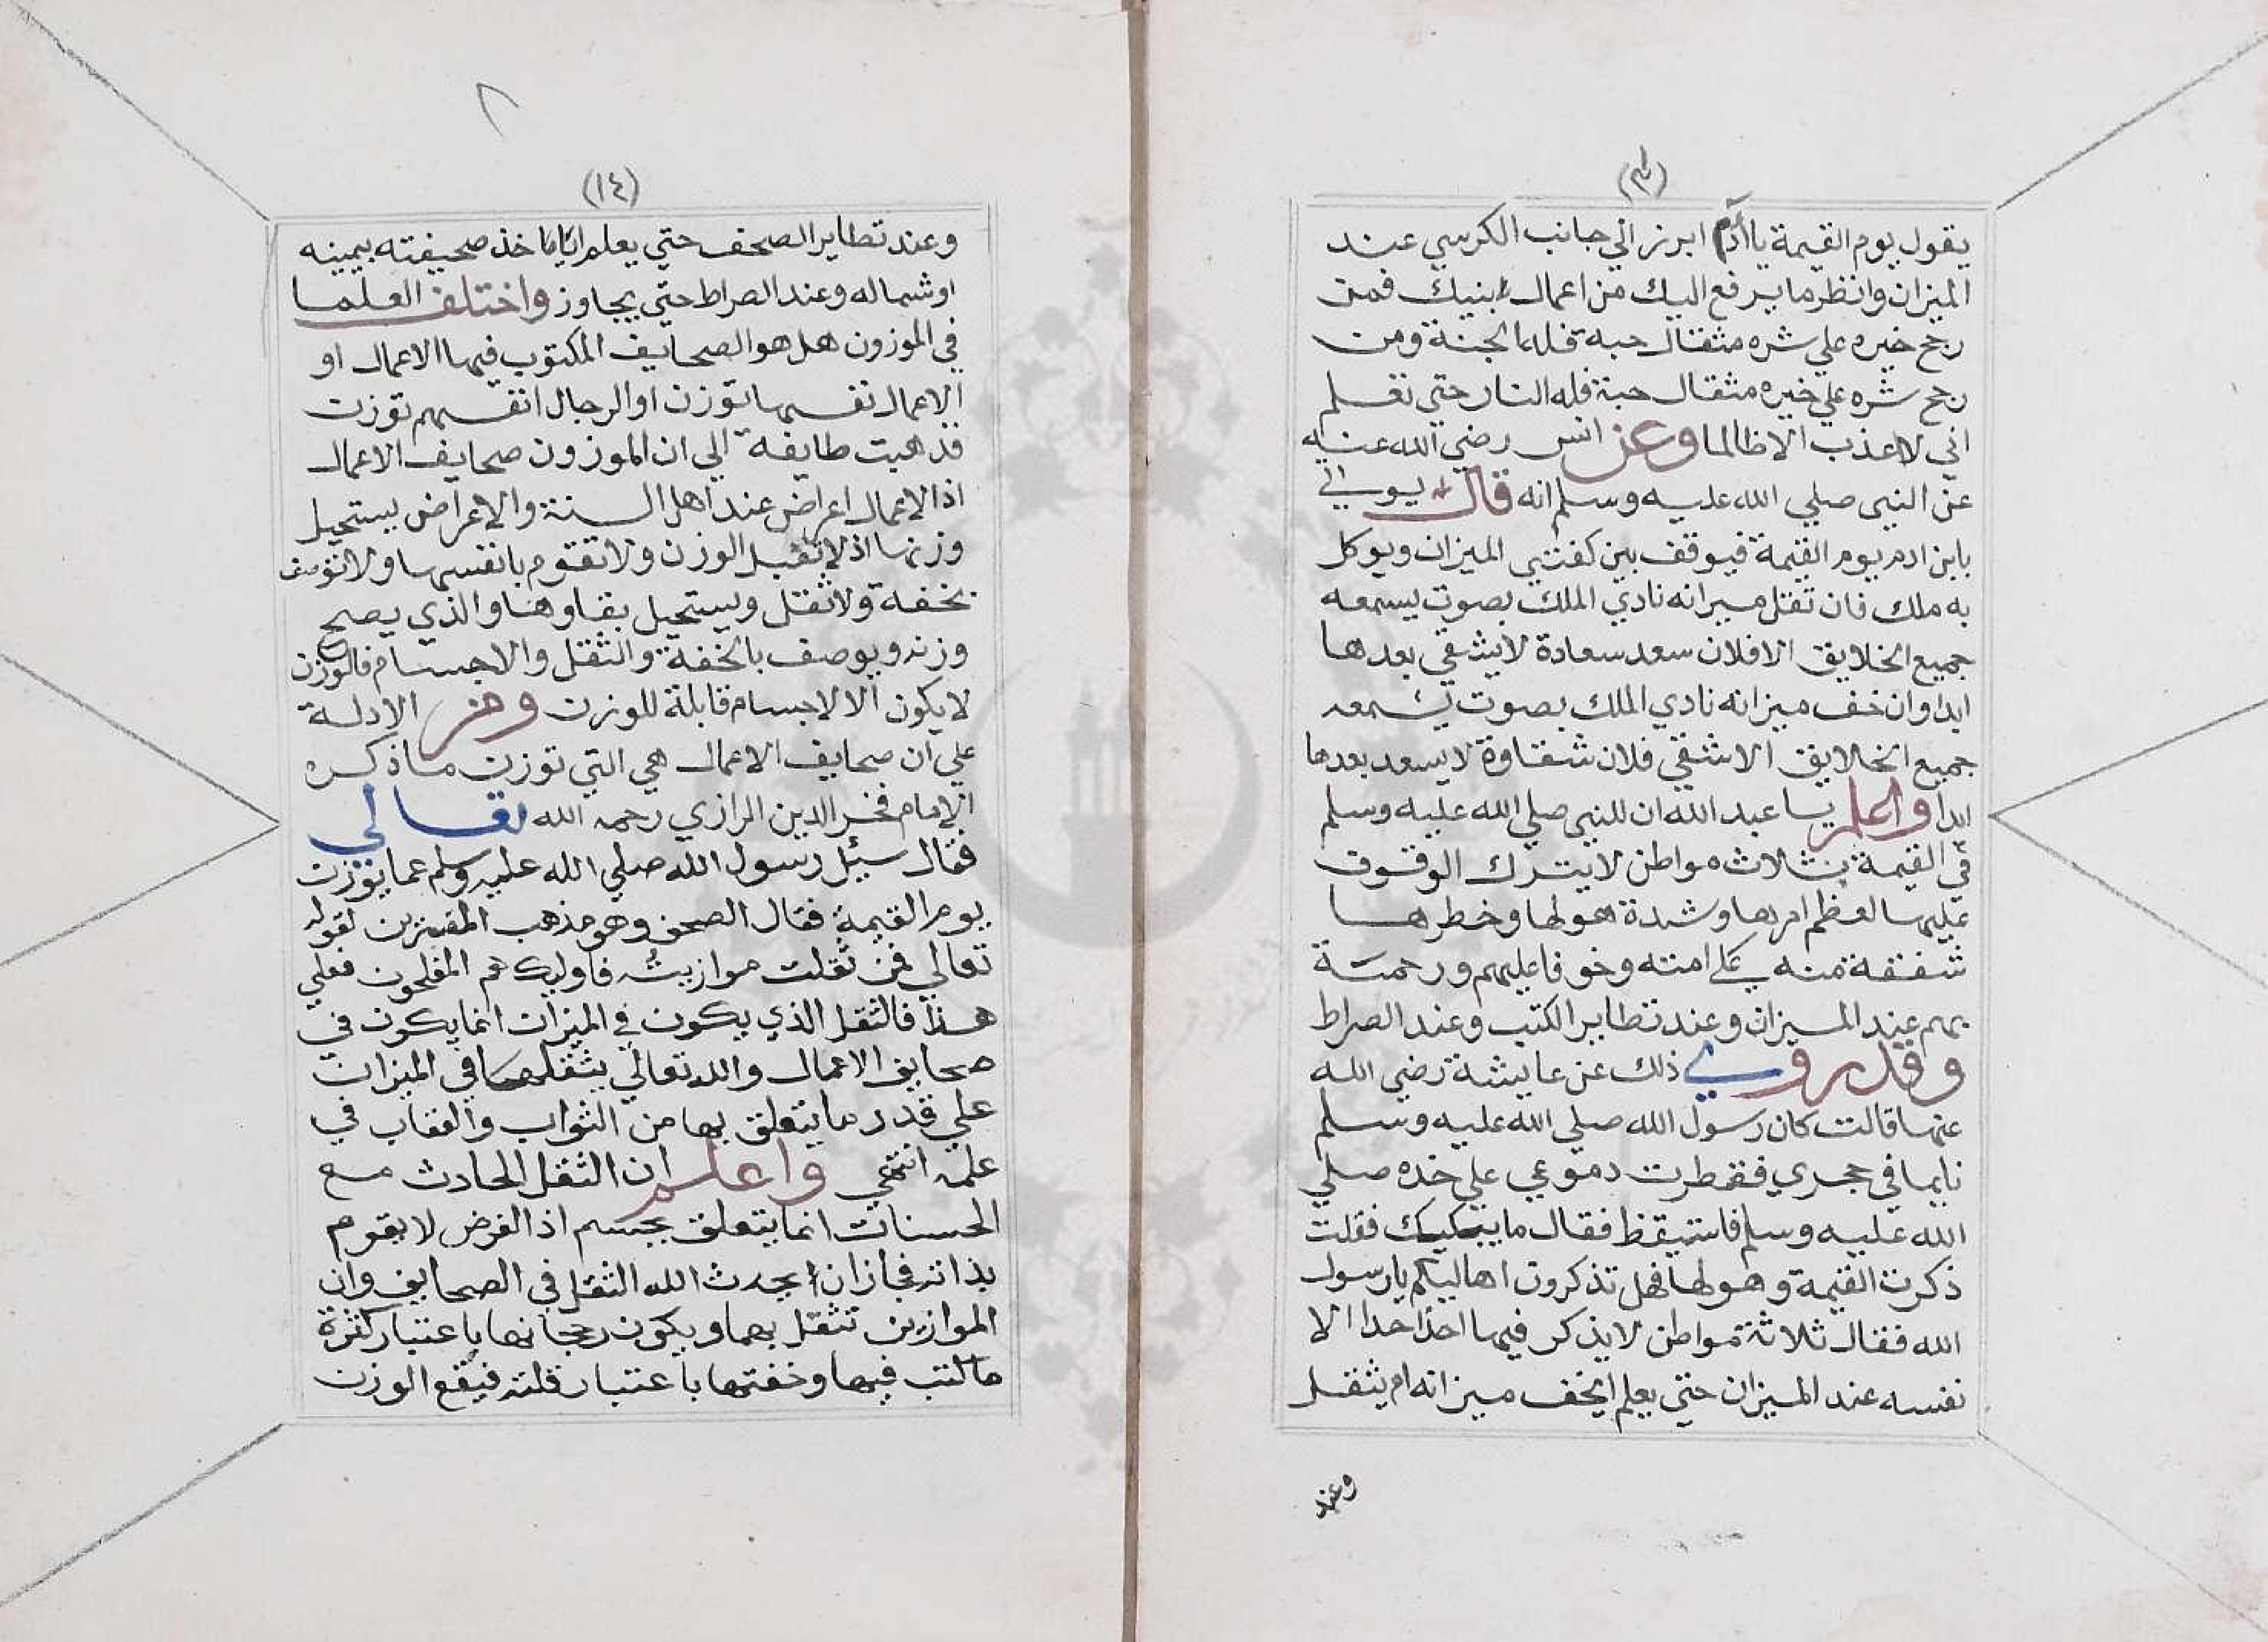 (١٣)
يقول يوم القيمة يا آدم ابرز الي جانب الكرسي عند
الميزان وانظر ما يرفع اليك من اعمال بنيك فمن
رجح خيره علي شره مثقال حبة فله الجنة ومن
رجح شره علي خيره مثقال حبة فله النار حتي تعلم
اني لا اعذب الا ظالما وعن انس رضي الله عنه
عن النبي صلي الله عليه وسلم انه قال يوتي
بابن ادم يوم القيمة فيوقف بين كفتي الميزان ويوكل
به ملك فان ثقل ميزانه نادي الملك بصوت يسمعه
جميع الخلايق الا فلان سعد سعادة لا يشقي بعدها
ابدا وان خف ميزانه نادي الملك بصوت يسمعه
جميع الخلايق الا شقي فلان شقاوة لا يسعد بعدها
ابدا واعلم يا عبد الله ان للنبي صلي الله عليه وسلم
في القيمة ثلاث مواطن لا يترك الوقوف
عليها لعظم امرها وشدة هولها وخطرها
شفقة منه علي امته وخوفا عليهم ورحمة
بهم عند الميزان وعند تطاير الكتب وعند الصراط
وقد روي ذلك عن عايشة رضي الله
عنها قالت كان رسول الله صلي الله عليه وسلم
نايما في حجري فقطرت دموعي علي خده صلي
الله عليه وسلم فاستيقظ فقال ما يبكيك فقلت
ذكرت القيمة وهولها فهل تذكرون اهاليكم يا رسول
الله فقال ثلاثة مواطن لا يذكر فيها احدا احدا الا
نفسه عند الميزان حتي يعلم ايخف ميزانه ام يثقل
وعند
٨
(١٤)
وعند تطاير الصحف حتي يعلم اياخذ صحيفته بيمينه
او شماله وعند الصراط حتي يجاوز واختلف العلما
في الموزون هل هو الصحايف المكتوب فيها الاعمال او
الاعمال نفسها توزن او الرجال انفسهم توزن
فذهبت طايفة الي ان الموزون صحايف الاعمال
اذ الاعمال اعراض عند اهل السنة والاعراض يستحيل
وزنها اذ لا تقبل الوزن ولا تقوم بانفسها ولا توصف
بخفة ولا ثقل ويستحيل بقاوها والذي يصح
وزنه ويوصف بالخفة والثقل والاجسام فالوزن
لا يكون الا لاجسام قابلة للوزن ومن الادلة
علي ان صحايف الاعمال هي التي توزن ما ذكره
الامام فخر الدين الرازي رحمه الله تعالي
فقال سيل رسول الله صلي الله عليه وسلم عما يوزن
يوم القيمة فقال الصحف وهو مذهب المفسرين لقوله
تعالي فمن ثقلت موازينه فاوليك هم المفلحون فعلي
هذا فالثقل الذي يكون في الميزان انما يكون في
صحايف الاعمال والله تعالي يثقلها في الميزان
علي قدر ما يتعلق بها من الثواب والعقاب في
علمه انتهي واعلم ان الثقل الحادث مع
الحسنات انما يتعلق بجسم اذ العرض لا يقوم
بذاته فجاز ان يحدث الله الثقل في الصحايف وان
الموازين تثقل بهما ويكون رجحانها باعتبار كثرة
ما كتب فيها وخفتها باعتبار قلته فيقع الوزن